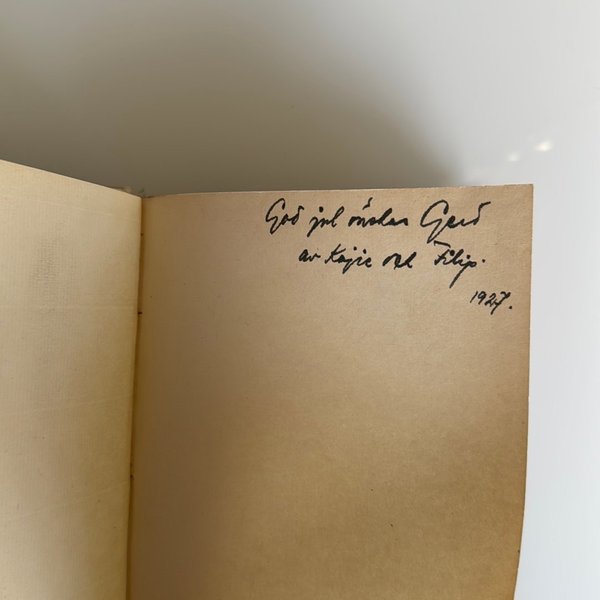 God jul önskas Gerd
av Kajie och Filip.
1927.